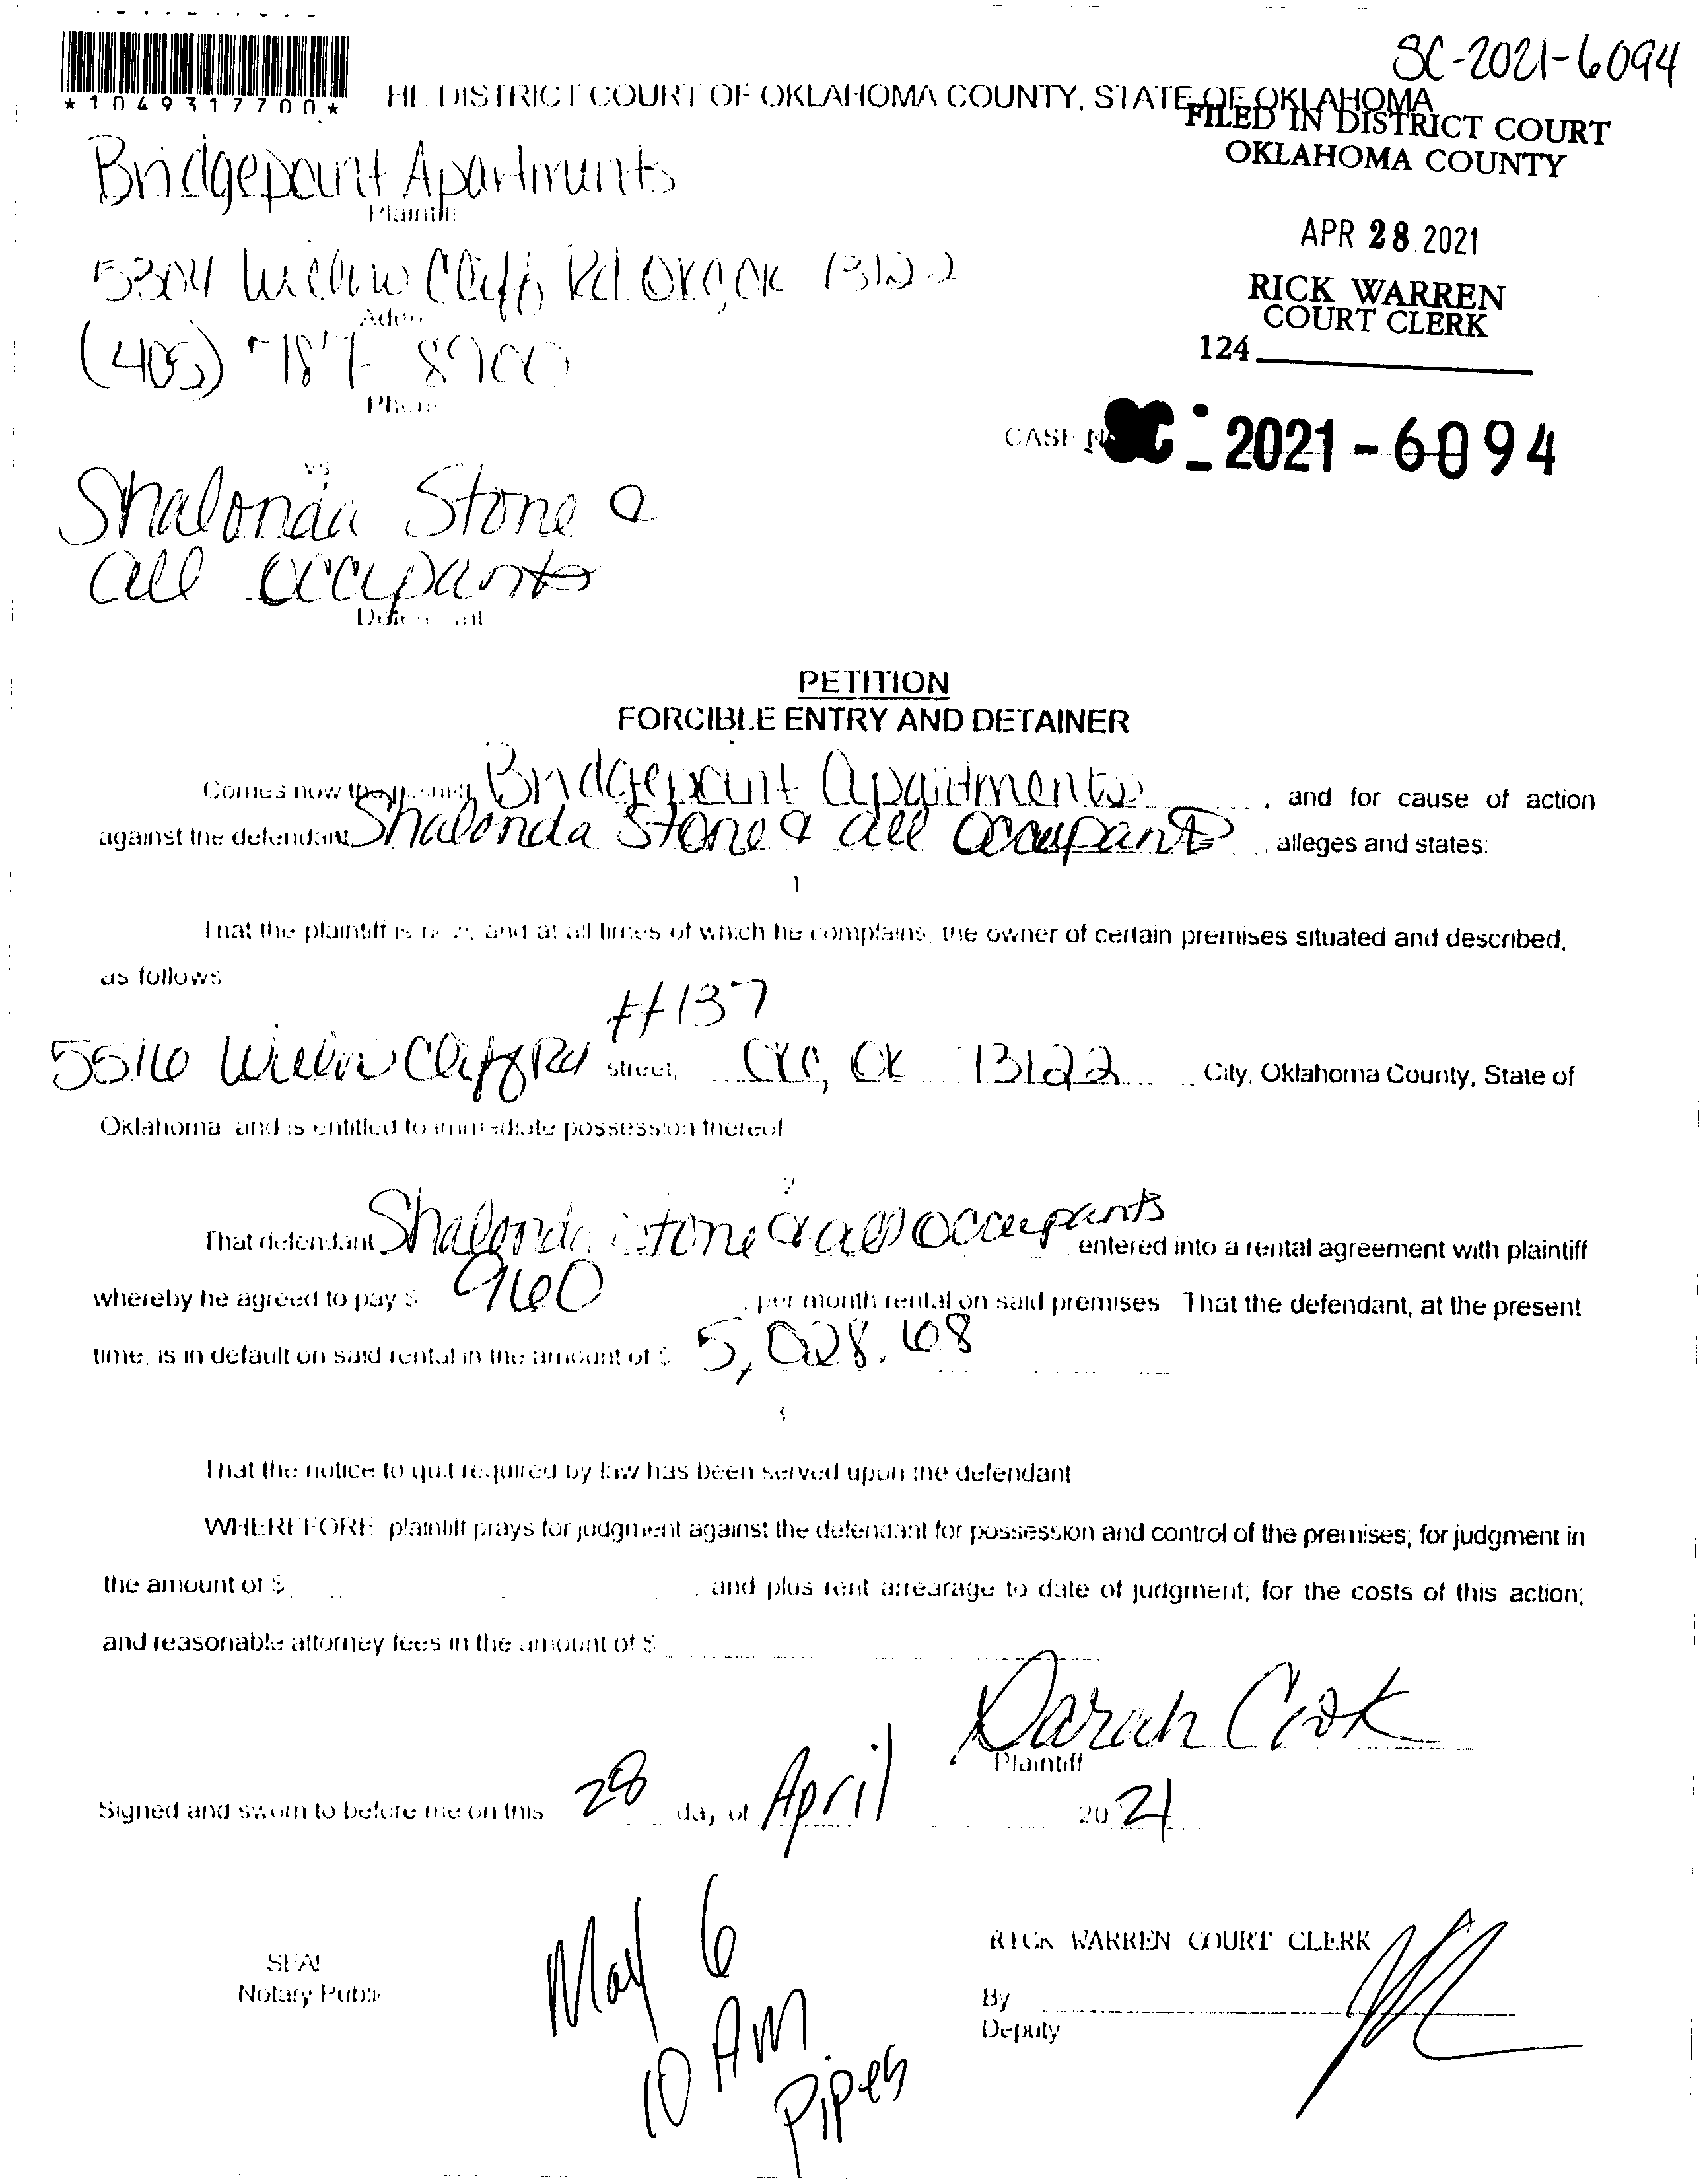 SC-2021-6094
*1049317700*
HE DISTRICT COURT OF OKLAHOMA COUNTY, STATE OF OKLAHOMA
FILED IN DISTRICT COURT
OKLAHOMA COUNTY
Bridgepoint Apartments
Plaintiff
APR 28 2021
5304 Willow Cliff Rd. OKC OK 73122
Address
RICK WARREN
COURT CLERK
(405) 787 8900
124
Phone
CASE NO SC - 2021-6094
vs
Shalonda Stone &
all occupants
Defendant
PETITION
FORCIBLE ENTRY AND DETAINER
Comes now the plaintiff, Bridgepoint Apartments, and for cause of action
against the defendant Shalonda Stone & all Occupants, alleges and states:
1
That the plaintiff is now, and at all times of which he complains, the owner of certain premises situated and described,
as follows
#137
Willow Cliff Rd street, OKC, OK 73122 City, Oklahoma County, State of
Oklahoma, and is entitled to immediate possession thereof
2
That defendant Shalonda Stone & all Occupants entered into a rental agreement with plaintiff
whereby he agreed to pay $ 960, per month rental on said premises That the defendant, at the present
time, is in default on said rental in the amount of $ 5,028.68
3
That the notice to quit required by law has been served upon the defendant
WHEREFORE plaintiff prays for judgment against the defendant for possession and control of the premises; for judgment in
the amount of $, and plus rent arrearage to date of judgment; for the costs of this action;
and reasonable attorney fees in the amount of $
Cook
Plaintiff
Signed and sworn to before me on this 28 day of April 2021
May 6
10 AM
Pipes
RICK WARREN COURT CLERK
SEAL
Notary Public
By
Deputy